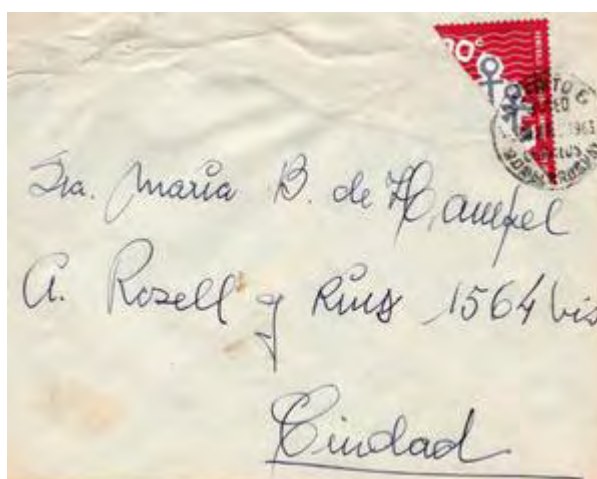 20c
1963
Sra. Maria B. de Hampel
A. Rosell y Rius 1564 bis
Ciudad